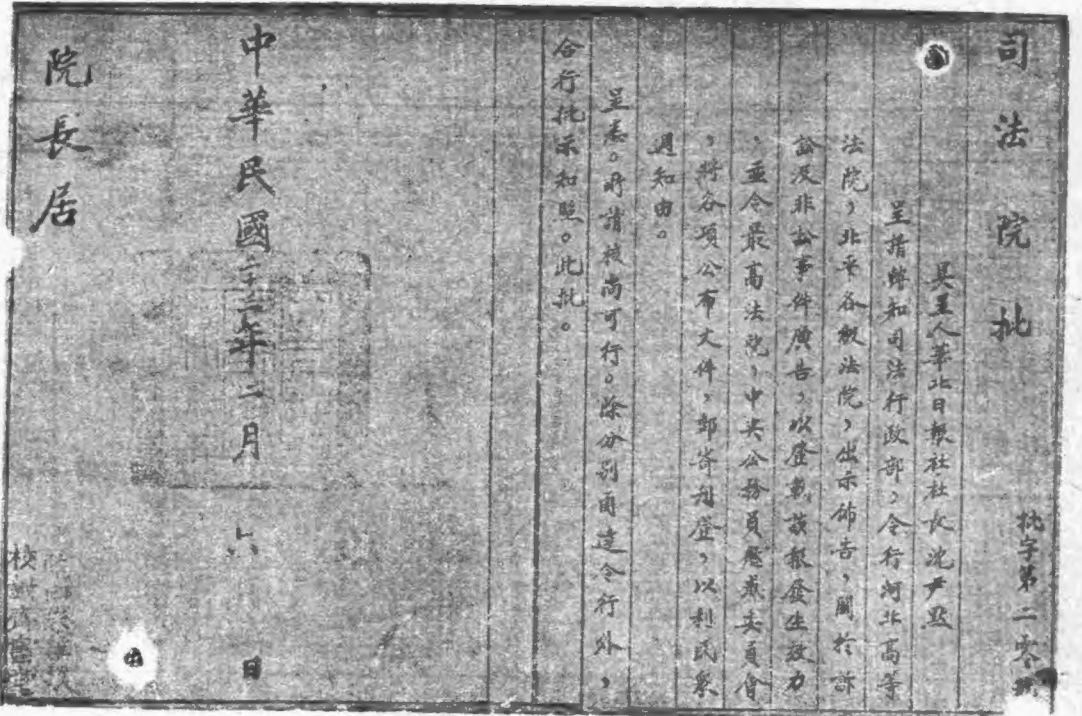 司法院批
批字第二零號
具呈人華北日報社社長沈尹默
呈請轉知司法行政部，令行河北高等
法院，北平各級法院，出示佈告，關於訴
訟及非訟事件廣告，以登載該報發生效力
，並令最高法院，中央公務員懲戒委員會
，將各項公布文件，郵寄刊登，以利民衆
週知由。
呈悉。所請核尚可行。除分別函達令行外，
合行批示知照。此批。
中華民國二十二年二月六日
院長居
校